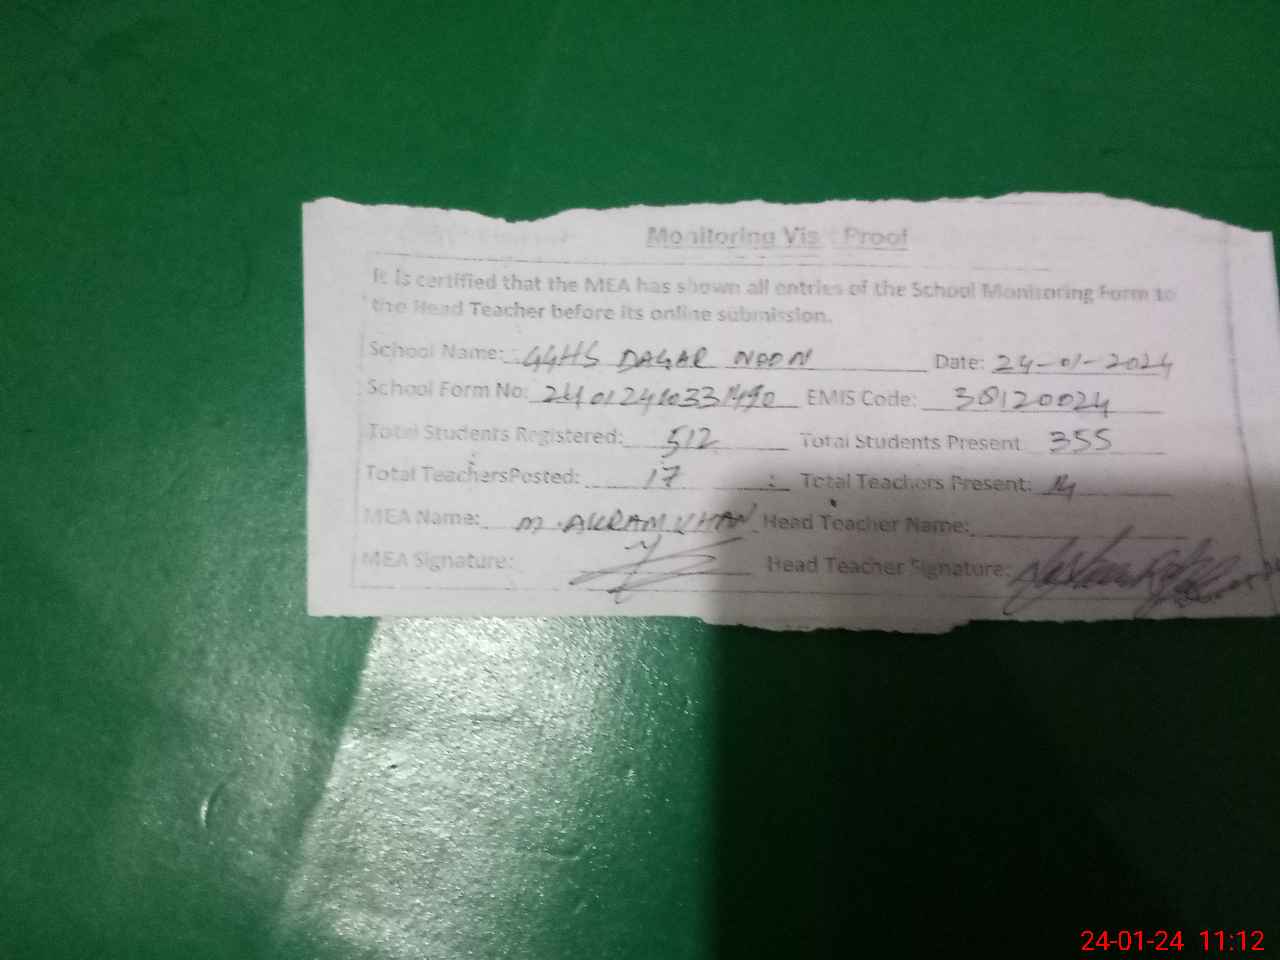 Monitoring Vis t Proof
It is certified that the MEA has shown all entries of the School Monitoring Form to
the Head Teacher before its online submission.
School Name: GGHS DAGAR NOON Date: 24-01-2024
School Form No: EMIS Code: 38120024
Total Students Registered: 512 Total Students Present 355
Total TeachersPosted: 17 Total Teachers Present: 14
MEA Name: M. AKRAM KHAN Head Teacher Name:
MEA Signature: Head Teacher Signature:
24-01-24 11:12